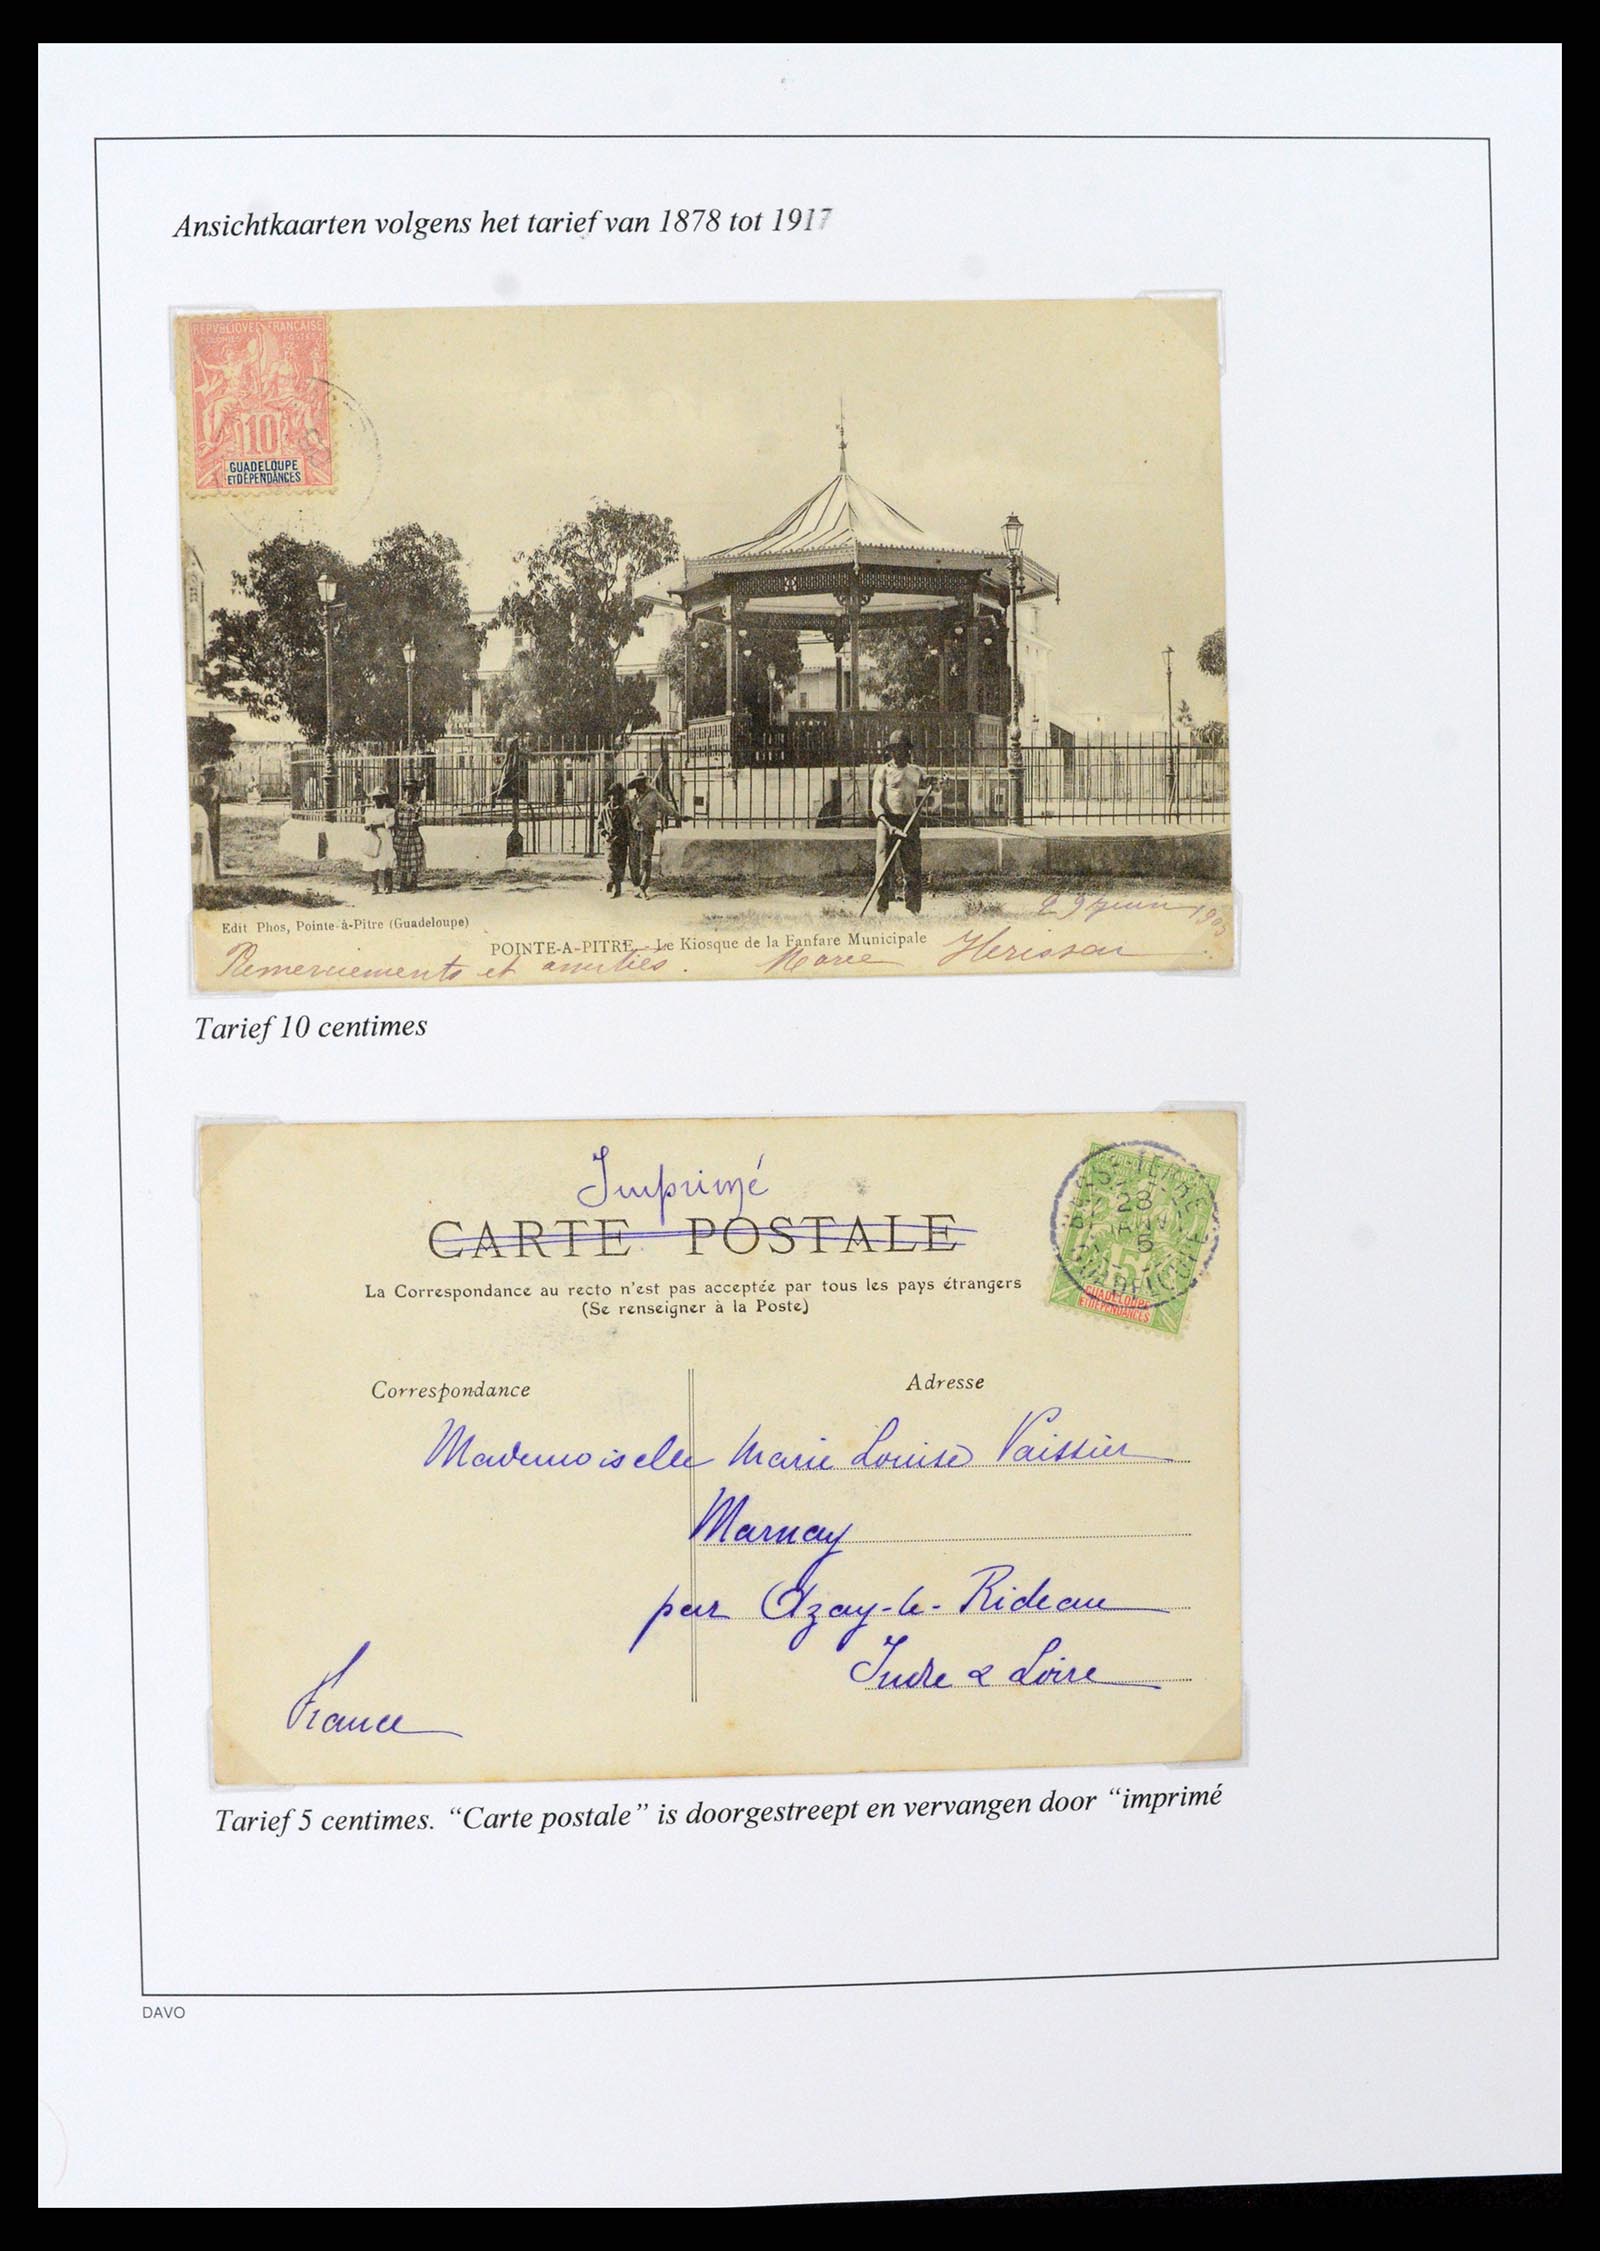 Ansichtkaarten volgens het tarief van 1878 tot 1917
REPVBLIQVE FRANÇAISE
COLONIES POSTES
10
GUADELOUPE
ET DÉPENDANCES
29 juin 1905
Edit Phos, Pointe-à-Pitre (Guadeloupe)
POINTE-A-PITRE - Le Kiosque de la Fanfare Municipale
Remerciements et amitiés. Marie Herisson
Tarief 10 centimes
Imprimé
CARTE POSTALE
La Correspondance au recto n'est pas acceptée par tous les pays étrangers
(Se renseigner à la Poste)
BASSE-TERRE
28
JANV
5
GUADELOUPE
5
GUADELOUPE
ET DÉPENDANCES
Correspondance
Adresse
Mademoiselle Marie Louise Vaissier
Marnay
par Azay-le-Rideau
Indre & Loire
France
Tarief 5 centimes. “Carte postale” is doorgestreept en vervangen door “imprimé
DAVO